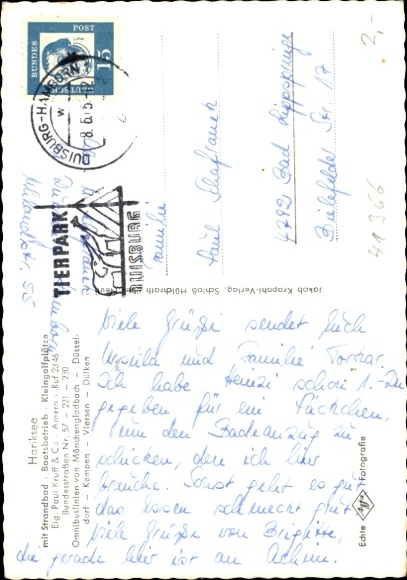 15
BUNDES POST
DEUTSCHE
DUISBURG-HAMBORN 1
8.6.5
TIERPARK
DUISBURG
2,-
Familie
Paul
4792 Bad Lippspringe
Bielefelder Str. 17
41366
Jakob Krapohl-Verlag, Schloß Hülchrath
Hariksee
mit Strandbad · Bootsbetrieb · Kleingolfplätze
Eig. Paul Kruff & Co. · Amern · Ruf 23 46
Bundesstraßen Nr. 57 – 221 – 230
Omnibuslinien von Mönchengladbach – Düssel-
dorf – Kempen – Viersen – Dülken
Viele Grüße sendet Euch
Ursula und Familie
Ich habe schon 1.-
gegeben für ein Päckchen,
um den Badeanzug zu
schicken, den ich hier
brauche. Sonst geht es gut
das Essen schmeckt gut
Viele Grüße von Brigitte,
die gerade hier ist an Achim.
Echte Agfa Fotografie